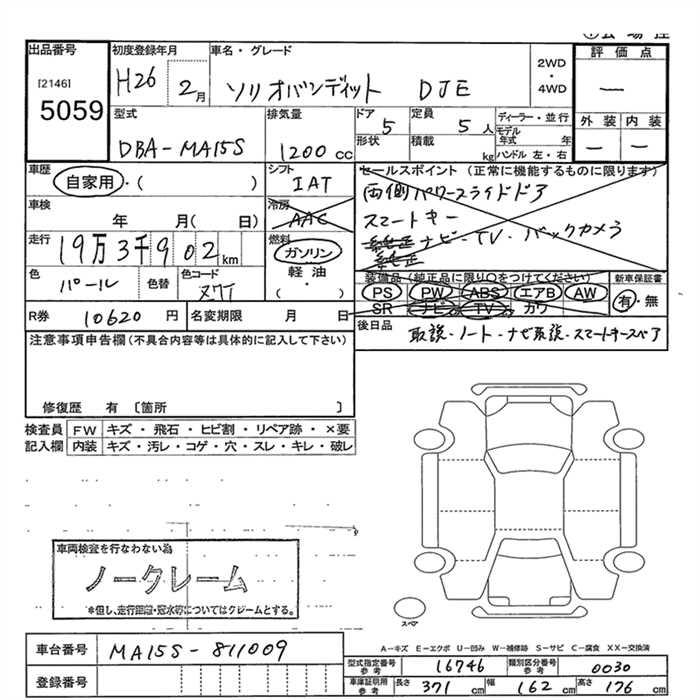 出品番号
[2146]
5059
初度登録年月
H26 2月
車名・グレード
ソリオバンディット DJE
2WD
・
4WD
評価点
―
外装 内装
― ―
型式
DBA-MA15S
排気量
1200cc
ドア
5
形状
定員
5人
積載
kg
ディーラー・並行
モデル
年式 年
ハンドル 左・右
車歴
自家用・( )
シフト
IAT
セールスポイント (正常に機能するものに限ります)
両側パワースライドドア
スマートキー
ナビ・TV・バックカメラ
純正
車検
年 月( 日)
冷房
AAC
走行
19万3千902km
燃料
ガソリン
軽油・
( )
色
パール
色替
色コード
装備品(純正品に限り○をつけてください)
PS PW ABS エアB AW
SR ナビ TV カワ
新車保証書
有・無
R券
10620円
名変期限 月 日
後日品
取説・ノート・ナビ取説・スマートキースペア
注意事項申告欄(不具合内容等は具体的に記入して下さい)
修復歴 有〔箇所 〕
検査員
記入欄
FW キズ・飛石・ヒビ割・リペア跡・×要
内装 キズ・汚レ・コゲ・穴・スレ・キレ・破レ
車両検査を行なわない為
ノークレーム
*但し、走行距離・冠水等についてはクレームとする。
スペア
A－キズ E－エクボ U－凹み W－補修跡 S－サビ C－腐食 XX－交換済
車台番号
MA15S-811009
登録番号
型式指定番号
参考
16746
類別区分番号
参考
0030
車庫証明用
参考
長さ 371cm 幅 162cm 高さ 176cm